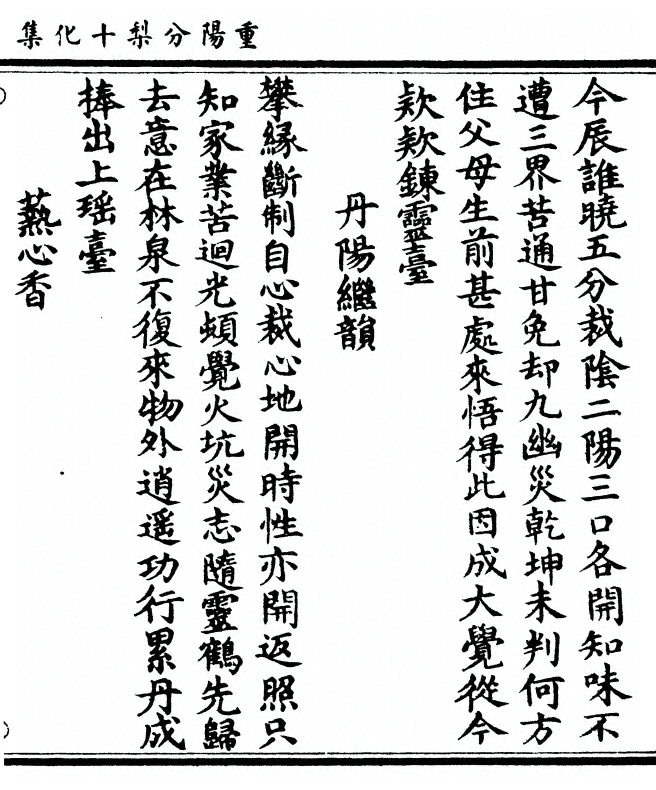 重陽分梨十化集
今辰誰曉五分裁陰二陽三口各開知味不
遭三界苦通甘免却九幽災乾坤未判何方
住父母生前甚處來悟得此因成大覺從今
欵欵鍊靈臺
丹陽繼韻
攀緣斷制自心裁心地開時性亦開返照只
知家業苦迴光頓覺火坑災志隨靈鶴先歸
去意在林泉不復來物外逍遥功行累丹成
捧出上瑶臺
爇心香